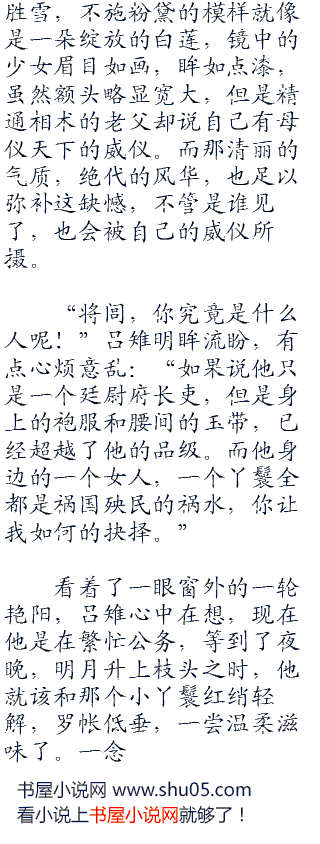 胜雪，不施粉黛的模样就像
是一朵绽放的白莲，镜中的
少女眉目如画，眸如点漆，
虽然额头略显宽大，但是精
通相术的老父却说自己有母
仪天下的威仪。而那清丽的
气质，绝代的风华，也足以
弥补这缺憾，不管是谁见
了，也会被自己的威仪所
摄。
“将闾，你究竟是什么
人呢！”吕雉明眸流盼，有
点心烦意乱：“如果说他只
是一个廷尉府长吏，但是身
上的袍服和腰间的玉带，已
经超越了他的品级。而他身
边的一个女人，一个丫鬟全
都是祸国殃民的祸水，你让
我如何的抉择。”
看着了一眼窗外的一轮
艳阳，吕雉心中在想，现在
他是在繁忙公务，等到了夜
晚，明月升上枝头之时，他
就该和那个小丫鬟红绡轻
解，罗帐低垂，一尝温柔滋
味了。一念
书屋小说网 www.shu05.com
看小说上书屋小说网就够了！